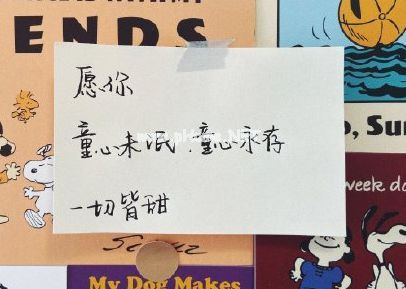 ENDS
愿你
童心未泯 童心永存
一切皆甜
o, Sur
week do
My Dog Makes